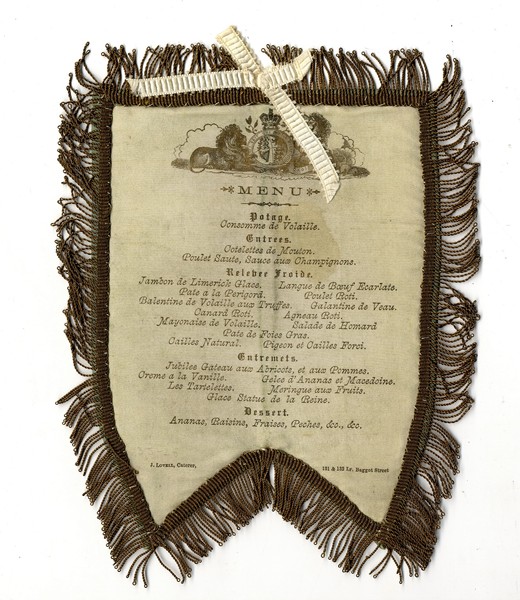 MENU
Potage.
Consomme de Volaille.
Entrees.
Cotelettes de Mouton.
Poulet Saute, Sauce aux Champignons.
Relevee Froide.
Jambon de Limerick Glace. Langue de Bœuf Ecarlate.
Pate a la Perigord. Poulet Roti.
Balentine de Volaille aux Truffes. Galantine de Veau.
Canard Roti. Agneau Roti.
Mayonaise de Volaille. Salade de Homard
Pate de Foies Gras.
Cailles Natural. Pigeon et Cailles Forci.
Entremets.
Jubilee Gateau aux Abricots, et aux Pommes.
Creme a la Vanille. Gelee d'Ananas et Macedoine.
Les Tartelettes. Meringue aux Fruits.
Glace Statue de la Reine.
Dessert.
Ananas, Raisins, Fraises, Peches, &c., &c.
J. Lovell, Caterer, 131 & 132 Lr. Baggot Street